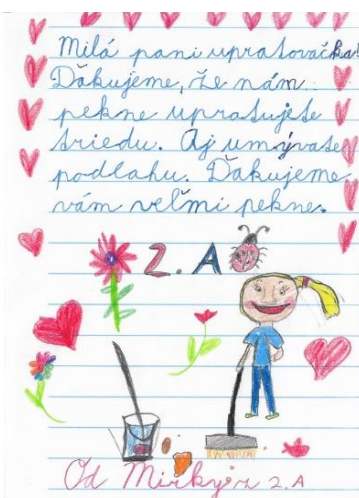 Milá pani upratovačka!
Ďakujeme, že nám
pekne upratujete
triedu. Aj umývate
podlahu. Ďakujeme
vám veľmi pekne.
2. A
Od Mirky 2. A